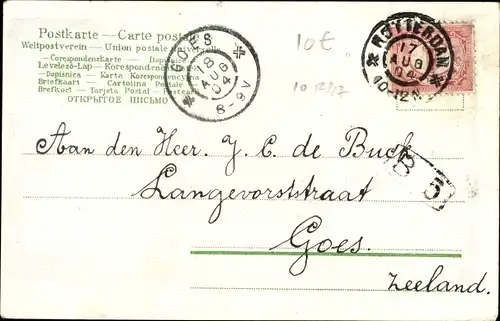 Postkarte — Carte postale
Weltpostverein — Union postale universelle
Correspondenskarte — Dopisnice
Levelező-Lap — Korespondenční
Dopisnica — Karta Korespondencyjna
Briefkaart — Cartolina Postale
Brefkort — Tarjeta Postal — Postcard
ОТКРЫТОЕ ПИСЬМО
GOES
18
AUG
04
8-9V
10€
10 12/12
ROTTERDAM
17
AUG
04
10-12N
Aan den Heer. J. C. de Buck
B 5
Langevorststraat
Goes.
Zeeland.